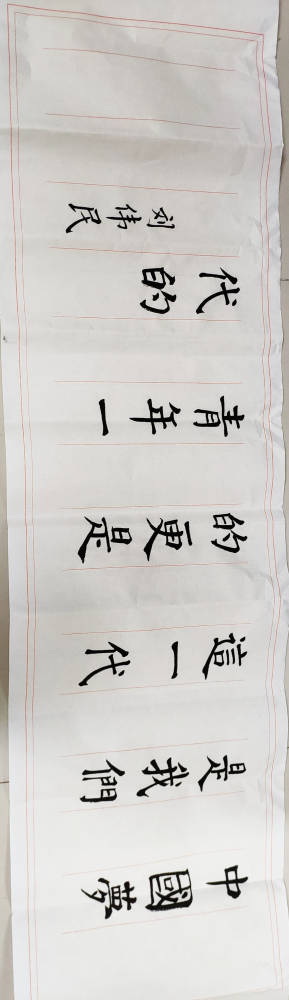 中國夢
是我們
這一代
的更是
青年一
代的
刘伟民